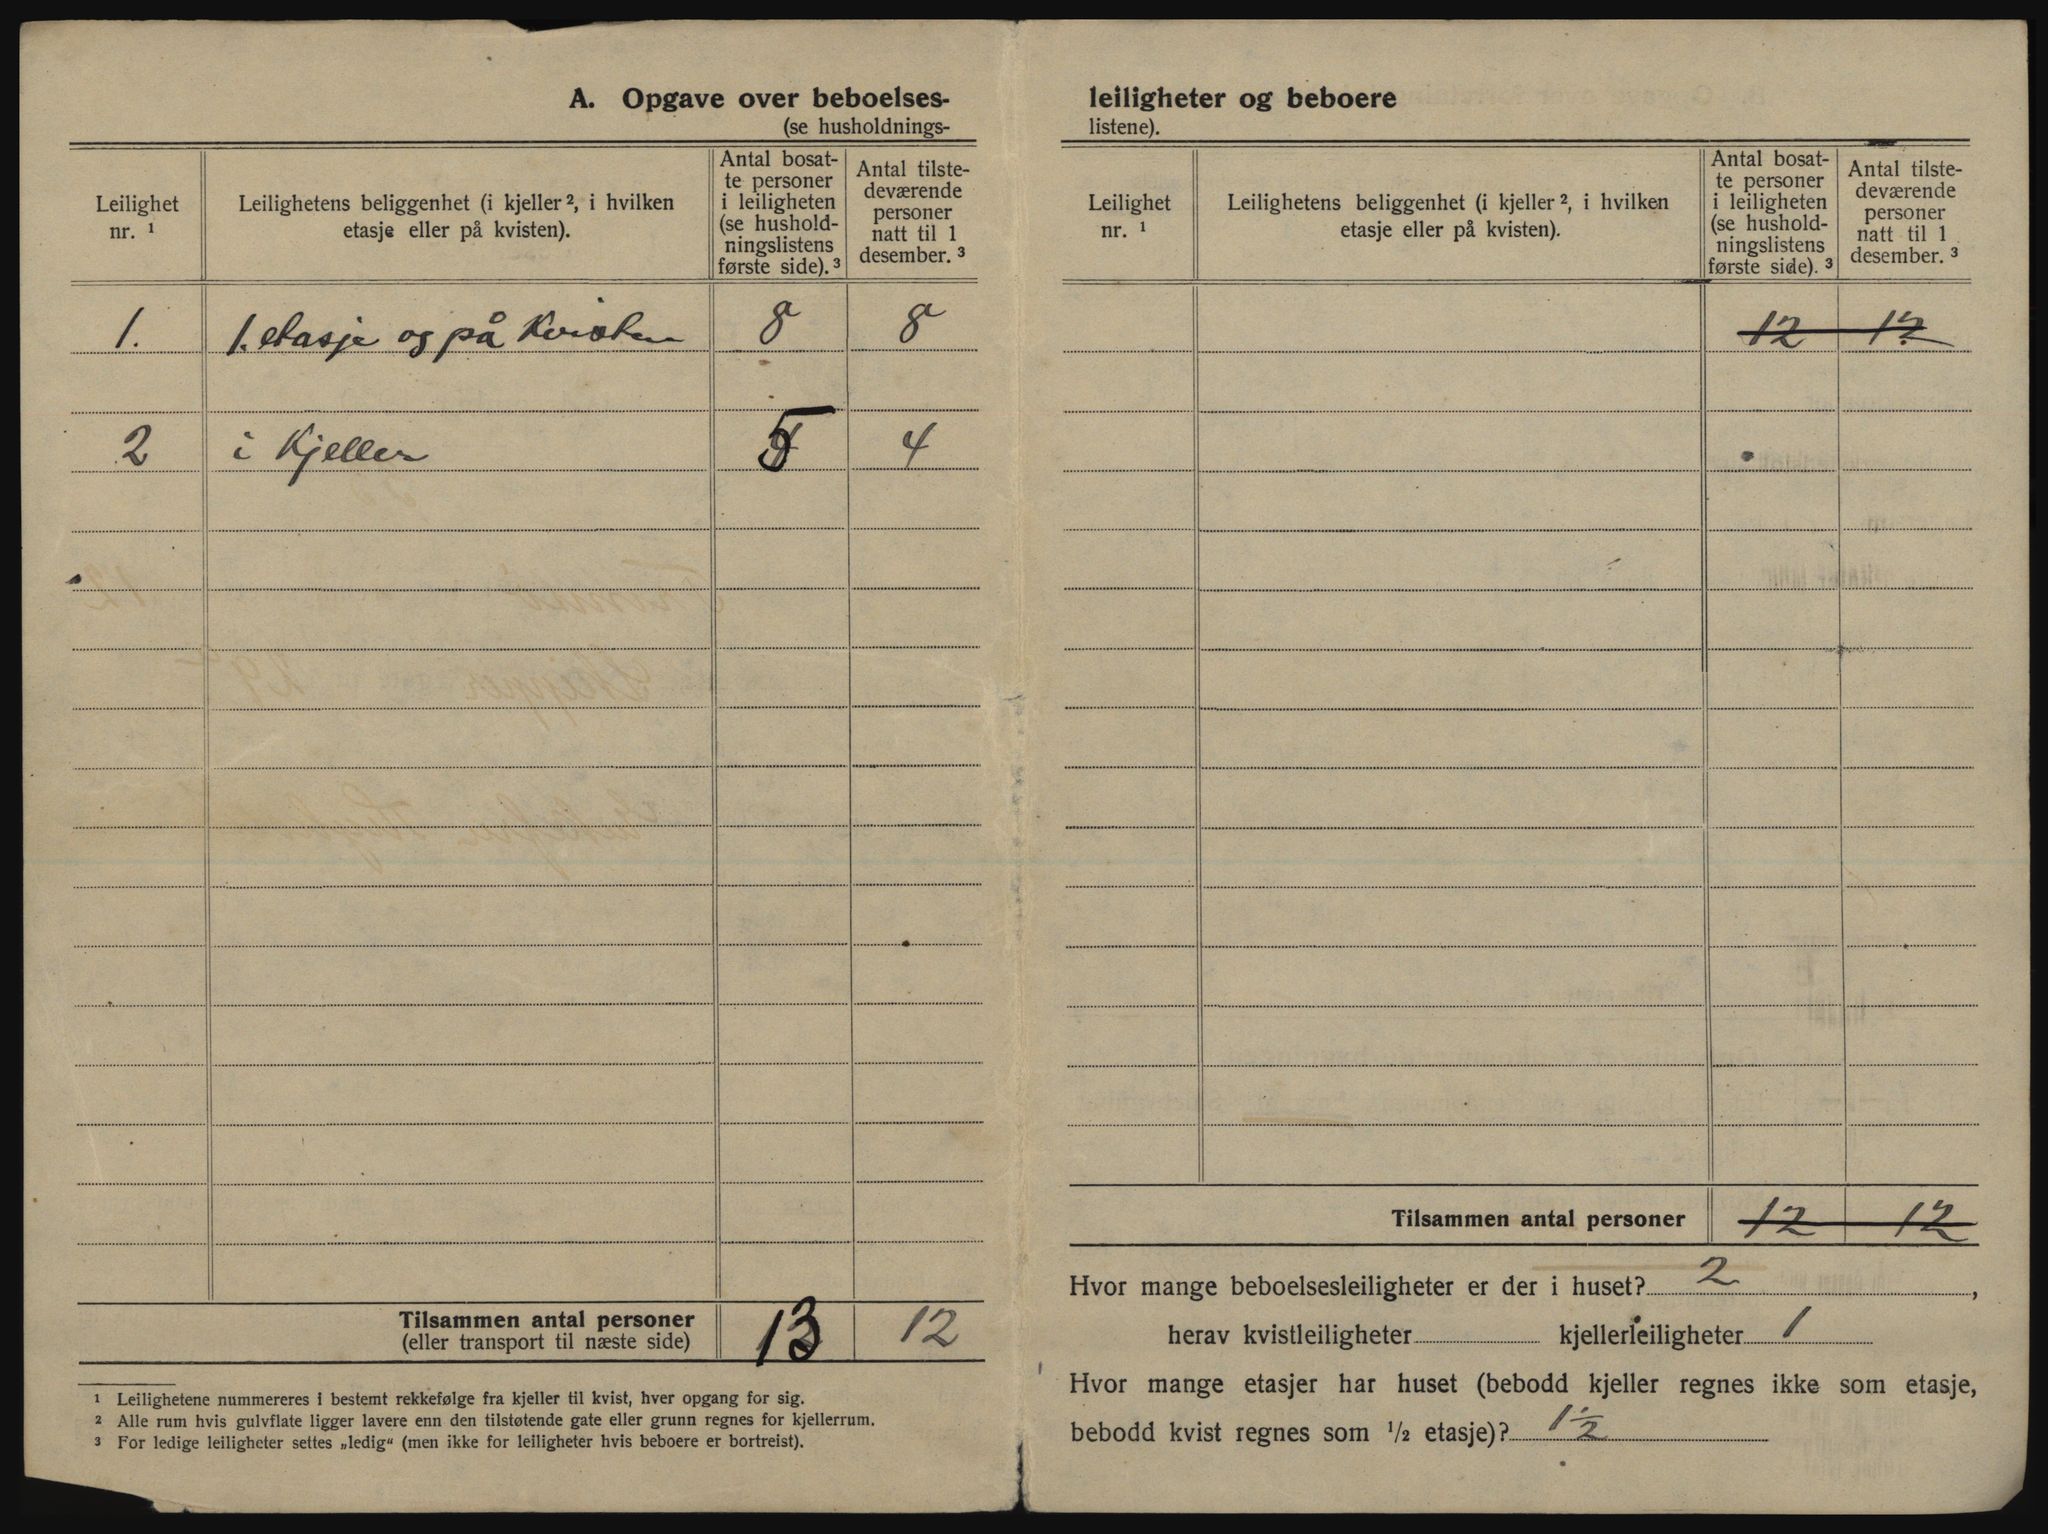 A. Opgave over beboelses-
(se husholdnings-
Leilighet
nr. ¹
Leilighetens beliggenhet (i kjeller ², i hvilken
etasje eller på kvisten).
Antal bosat-
te personer
i leiligheten
(se hushold-
ningslistens
første side). ³
Antal tilste-
deværende
personer
natt til 1
desember. ³
1. 1. etasje og på Kvisten 8 8
2 i Kjeller 5 4
Tilsammen antal personer
(eller transport til næste side)
13 12
¹ Leilighetene nummereres i bestemt rekkefølge fra kjeller til kvist, hver opgang for sig.
² Alle rum hvis gulvflate ligger lavere enn den tilstøtende gate eller grunn regnes for kjellerrum.
³ For ledige leiligheter settes „ledig“ (men ikke for leiligheter hvis beboere er bortreist).
leiligheter og beboere
listene).
Leilighet
nr. ¹
Leilighetens beliggenhet (i kjeller ², i hvilken
etasje eller på kvisten).
Antal bosat-
te personer
i leiligheten
(se hushold-
ningslistens
første side). ³
Antal tilste-
deværende
personer
natt til 1
desember. ³
12 12
Tilsammen antal personer 12 12
Hvor mange beboelsesleiligheter er der i huset? 2,
herav kvistleiligheter kjellerleiligheter 1
Hvor mange etasjer har huset (bebodd kjeller regnes ikke som etasje,
bebodd kvist regnes som ½ etasje)? 1½